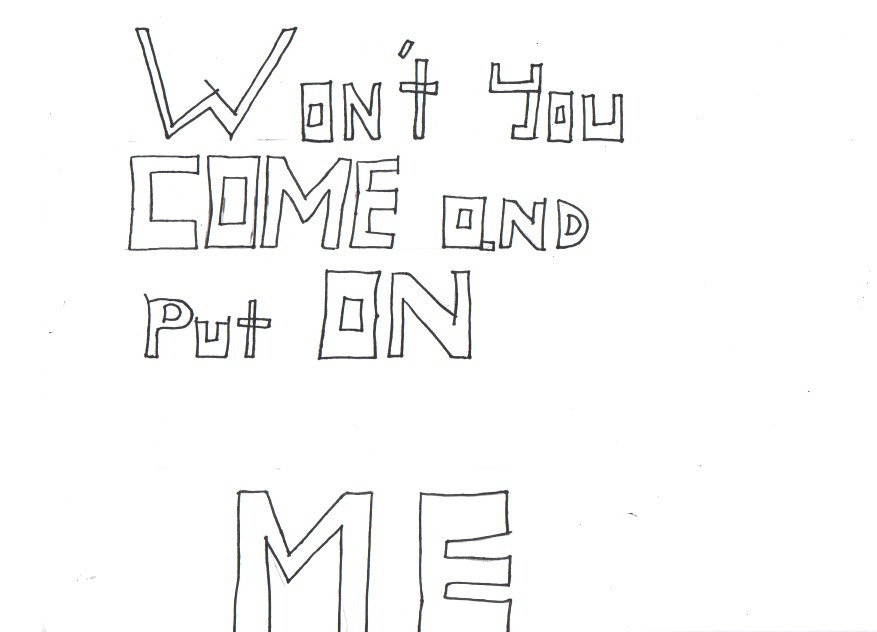 Won't You
COME aND
Put ON
ME